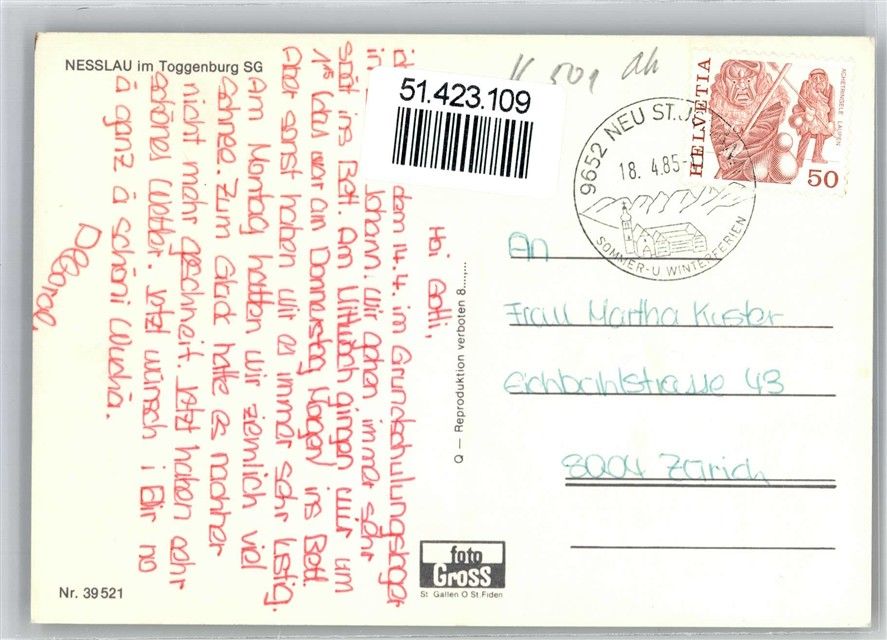 NESSLAU im Toggenburg SG
51.423.109
9652 NEU ST. J
18. 4.85-
SOMMER- U WINTERFERIEN
HELVETIA
ACHETRINGELE LAUPEN
50
Hoi Gotti,
dem 14.4. im Grundschulungslager
in Johann. Wir gehen immer sehr
spät ins Bett. Am Mittwoch gingen wir um
1 Uhr war am Donnerstag Morgen) ins Bett.
Aber sonst haben wir es immer sehr lustig.
Am Montag hatten wir ziemlich viel
Schnee. Zum Glück hatte es nachher
nicht mehr geschneit. Jetzt haben sehr
schönes Wetter. Jetzt wünsch i Dir no
ä ganz ä schöni Wuchä.
An
Frau Martha Kuster
Eichbühlstrasse 43
8004 Zürich
Q — Reproduktion verboten 8.......
foto
Gross
St. Gallen O St. Fiden
Nr. 39521